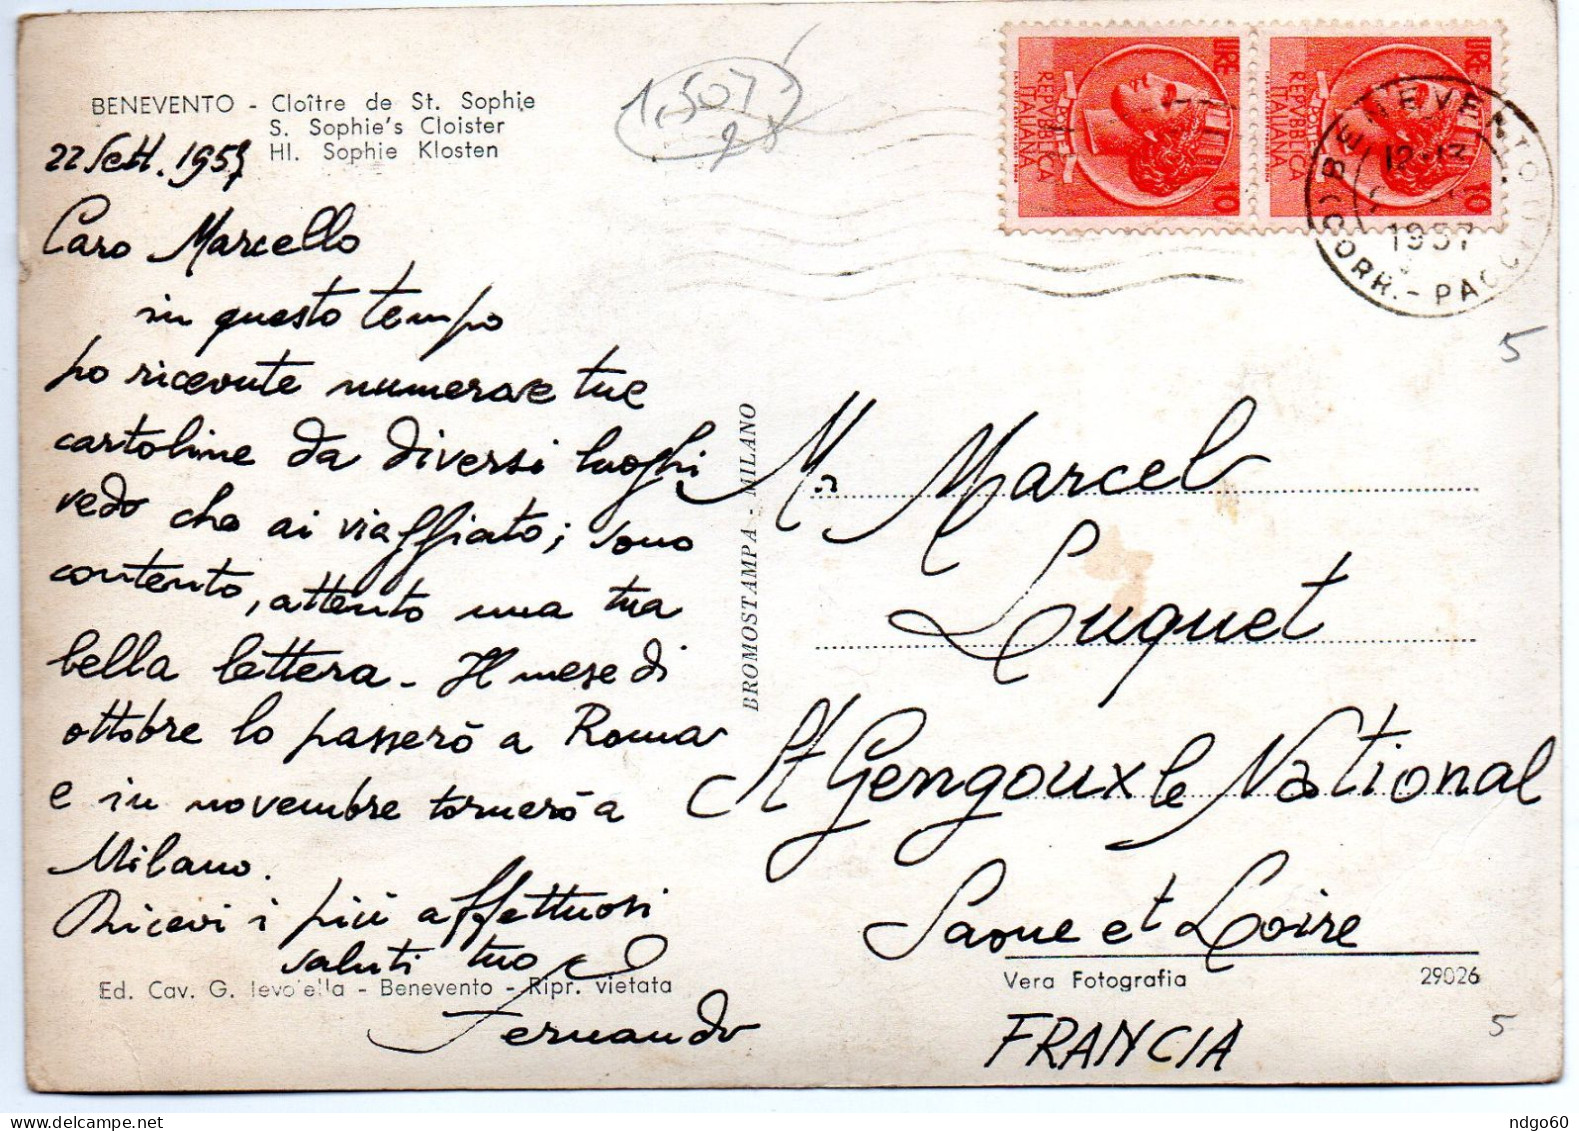 BENEVENTO - Cloître de St. Sophie
S. Sophie's Cloister
Hl. Sophie Klosten
22 Sett. 1957
Caro Marcello
in questo tempo
ho ricevute numerose tue
cartoline da diversi luoghi
vedo che ai viaffiato; sono
contento, attento una tua
bella lettera - Il mese di
ottobre lo passerò a Roma
e in novembre tornerò a
Milano.
Ricevi i più affettuosi
saluti tuo
Fernando
Ed. Cav. G. Ievolella - Benevento - Ripr. vietata
BROMOSTAMPA - MILANO
1,507
LIRE 10
POSTE
REPVBBLICA
ITALIANA
LIRE 10
POSTE
REPVBBLICA
ITALIANA
BENEVENTO
1957
CORR. - PACCHI
5
Mr Marcel
Luquet
St Gengoux le National
Saone et Loire
Vera Fotografia 29026
FRANCIA
5
ndgo60